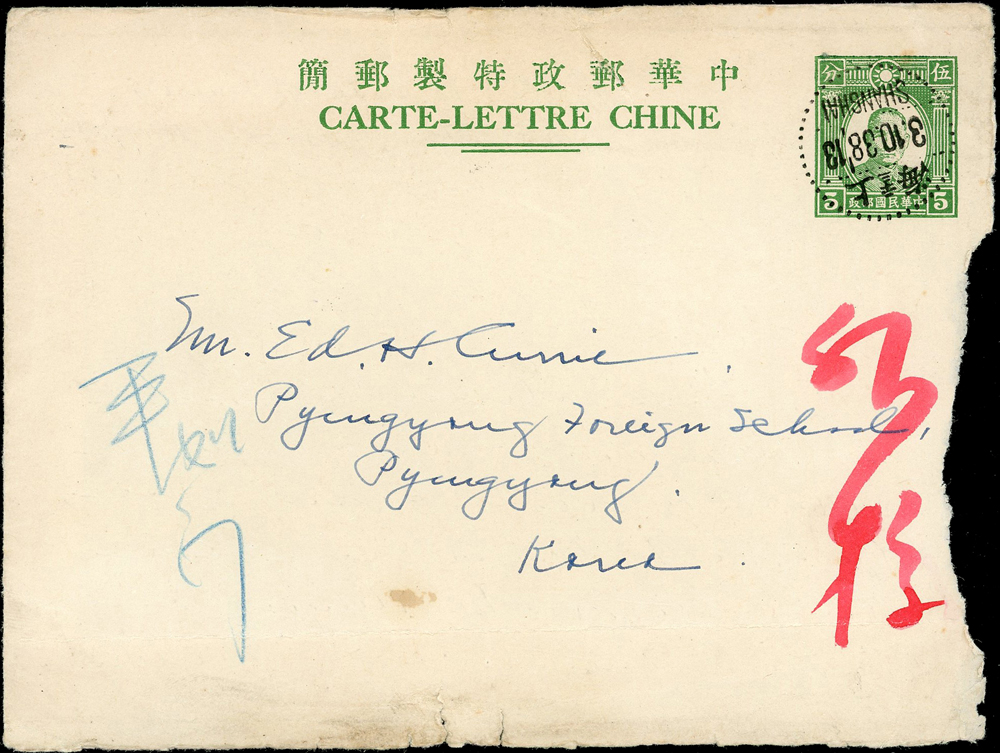 中華郵政特製郵簡
CARTE-LETTRE CHINE
伍分
SHANGHAI
3.10.38 13
上海
5 中華民國郵政 5
Mr. Ed. H. Currie,
Pyengyang Foreign School,
Pyengyang.
Korea.